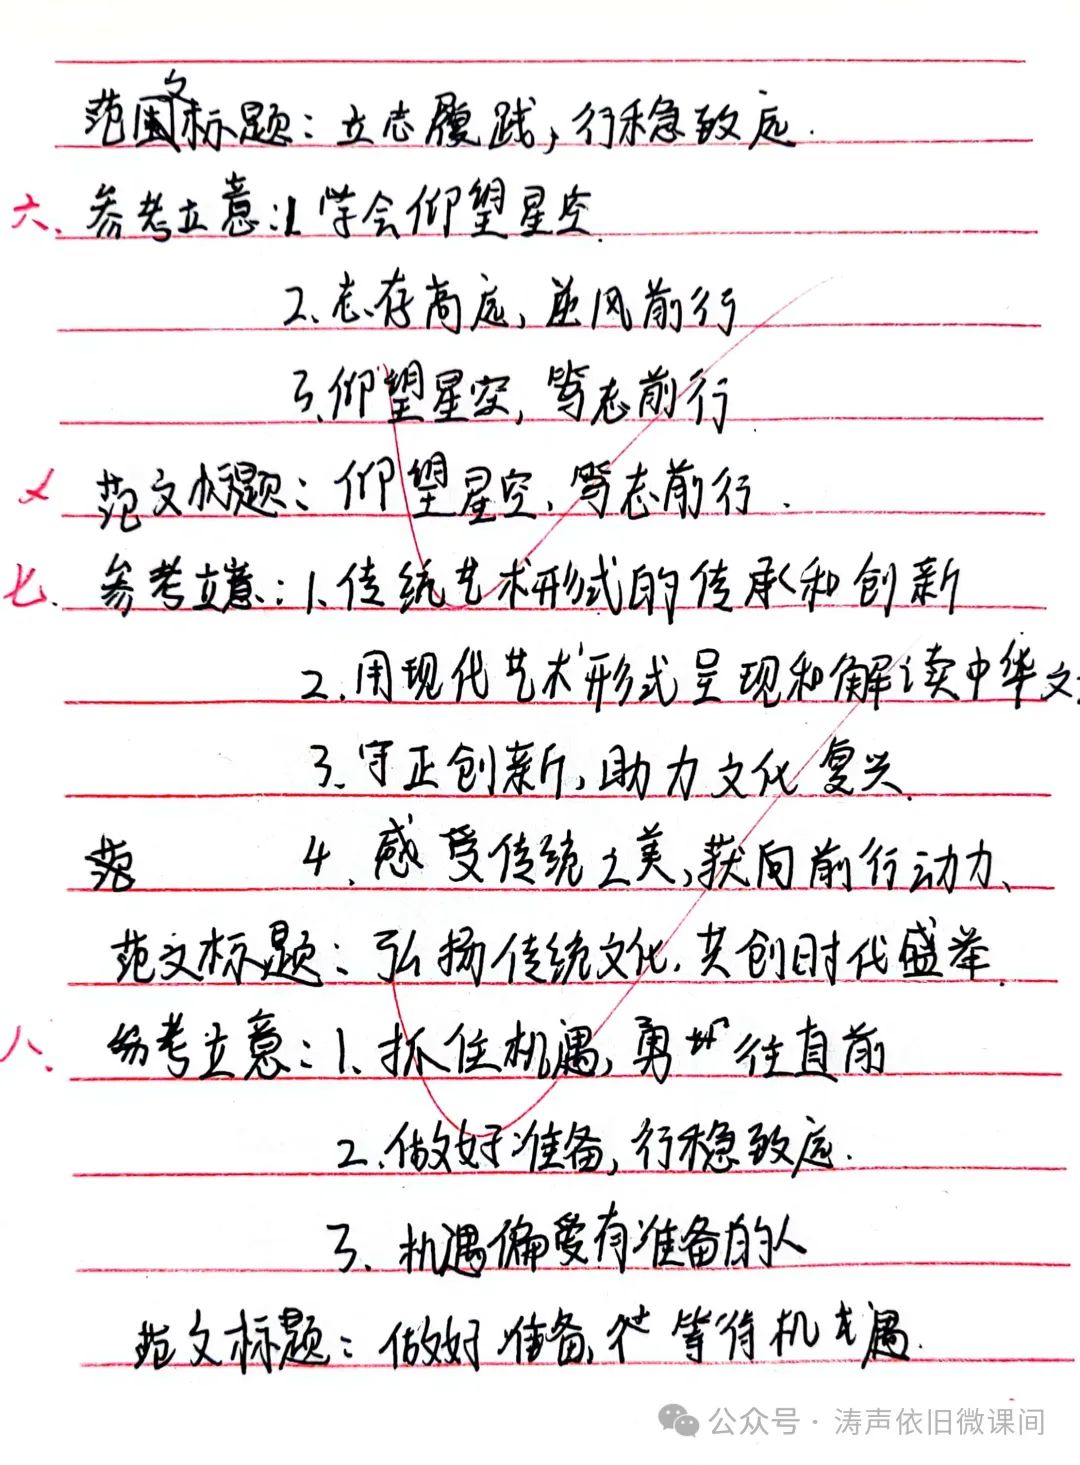 范文标题：立志履践，行稳致远．
六、参考立意：1.学会仰望星空．
2.志存高远，逆风前行
3.仰望星空，笃志前行．
范文标题：仰望星空、笃志前行．
七．参考立意：1.传统艺术形式的传承和创新
2.用现代艺术形式呈现和解读中华文
3.守正创新，助力文化复兴．
范 4.感受传统之美，获向前行动力、
范文标题：弘扬传统文化．共创时代盛举．
八、参考立意：1.抓住机遇，勇 往直前
2.做好准备，行稳致远．
3．机遇偏爱有准备的人
范文标题：做好准备， 等待机遇．
公众号·涛声依旧微课间